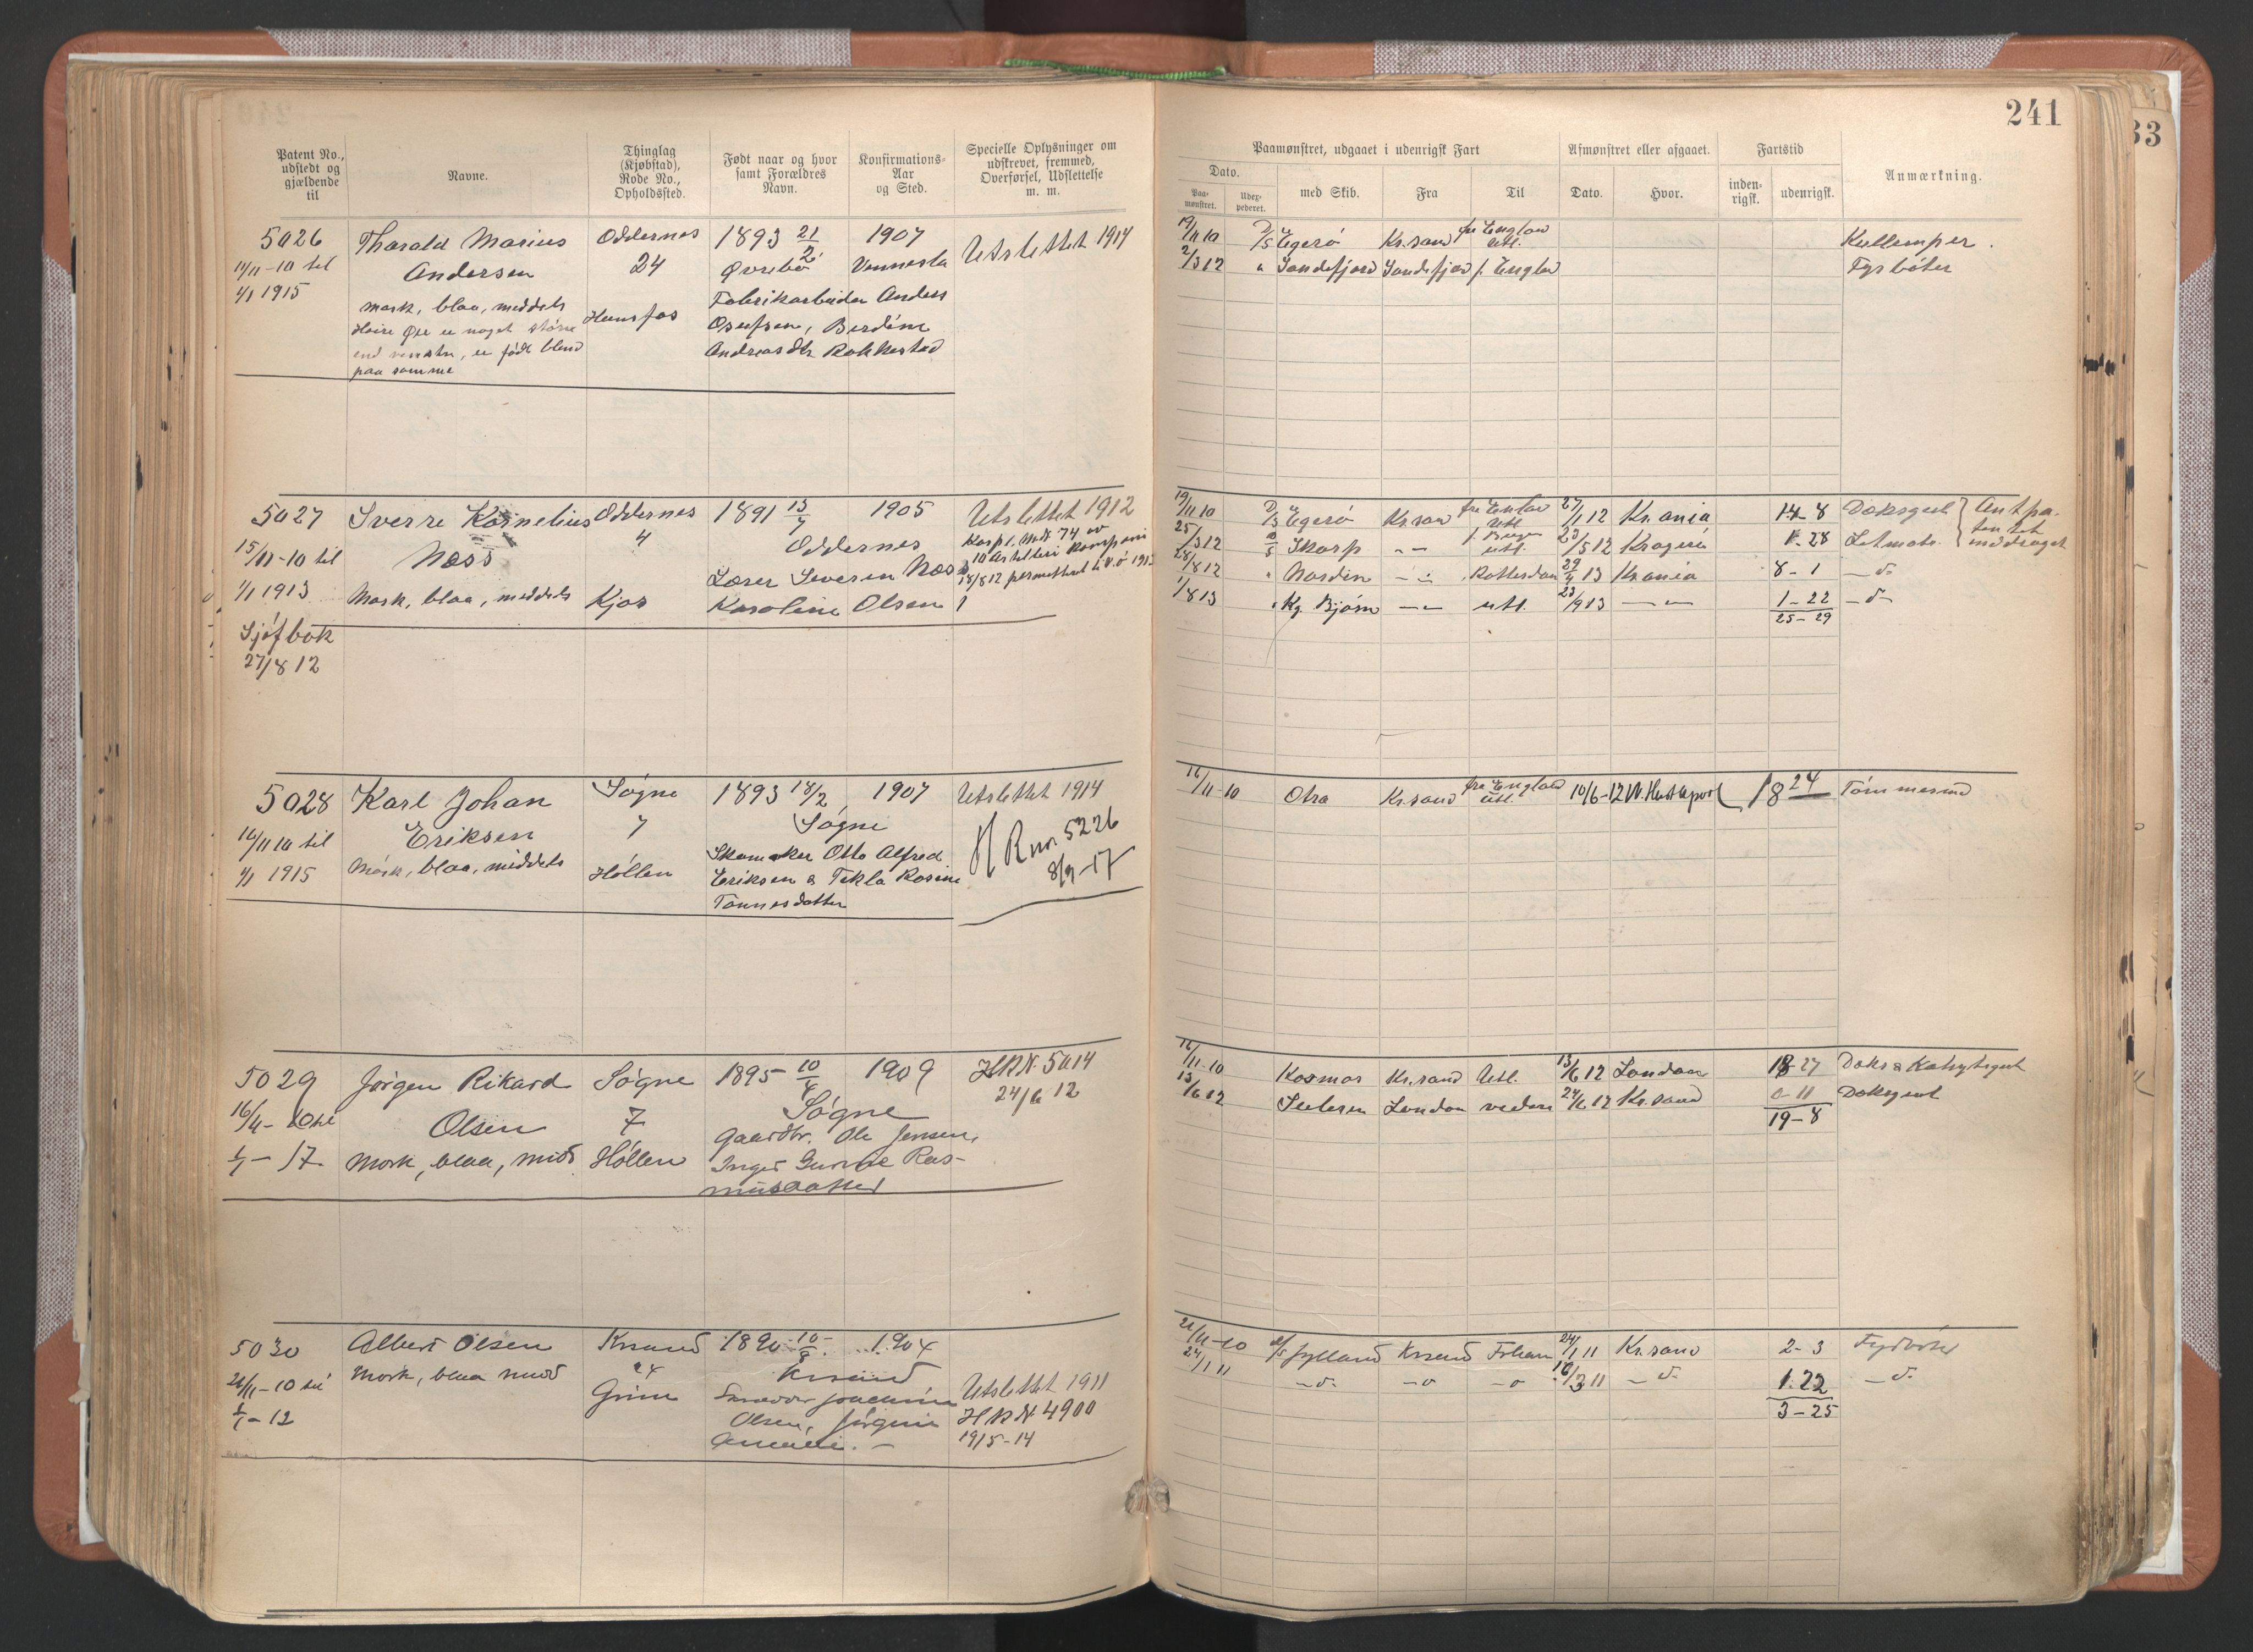 241
33
Patent No., udstedt og gjældende til
Navne.
Thinglag (Kjøbstad), Rode No., Opholdssted.
Født naar og hvor samt Forældres Navn.
Konfirmations-Aar og Sted.
Specielle Oplysninger om udskrevet, fremmed, Overførsel, Udslettelse m. m.
Paamønstret, udgaaet i udenrigsk Fart
Afmønstret eller afgaaet.
Fartstid
Anmærkning.
Dato.
Paa-mønstret.
Udex-pederet.
med Skib.
Fra
Til
Dato.
Hvor.
inden-rigsk.
udenrigsk.
5026 Tharald Marius Oddernes 1893 21/2 1907 Utslettet 1914
11/11-10 til Andersen 24 Øvrebø Vennesla
1/1 1915
mørk, blaa, middels Hunsfos Fabrikarbeider Anders
Høire Øie er noget større Osufsen, Berdine
end venstre, er født blind Andreasdtr Rokkestad
paa samme
19/11 10 D/S Egerø Kr.sand fra England Utl. Kullemper.
2/3 12 " Sandefjord Sandefjord f. Englad Fyrbøter
5027 Sverre Kornelius Oddernes 1891 13/7 1905 Utslettet 1912
15/11-10 til Næss 4 Oddernes Korpl. Mdr 74 av
10 Artilleri Kompani
1/1 1913 Mørk, blaa, middels Kjos Lærer Severin Næss 18/8 12 permittert til V.ø 1913
Karoline Olsen
Sjøfbok
27/8 12
19/11 10 D/S Egerø Kr.sand fra Enlad Utl. 27/1 12 Kr.ania 14-8 Doksgut } Ant pa-
25/3 12 D/S Skarp -"- f. Bergen utl. 23/5 12 Kragerø 1-28 Letmatr. } tentet
28/8 12 " Norden -"- Rotterdam 29/4 13 Kr.ania 8-1 -d- inddraget
1/8 13 " Kg. Bjørn -"- utl. 23/9 13 -"- 1-22 -d-
25-29
5028 Karl Johan Søgne 1893 18/2 1907 Utslettet 1914
16/11 10 til Eriksen 7 Søgne
1/1 1915 Mørk, blaa, middels Høllen Skomaker Otto Alfred
Eriksen & Tekla Rosine
Tønnesdatter
H R nr. 5226
8/9-17
16/11 10 Otra Kr.sand fra England Utl. 10/6-12 W. Hartlepool 18 24 Tømmermd
5029 Jørgen Rikard Søgne 1895 10/4 1909 H R N. 5014
24/6 12
16/11-10 til Olsen 7 Søgne
1/1-17 Mørk, blaa, mid Høllen Gaardbr. Ole Jensen,
Inger Gurine Ras-
musdatter
16/11-10 Kosmos Kr.sand Utl. 13/6 12 London 18-27 Doks & Kahytsgut
13/6 12 London videre 24/6 12 Kr.sand 0-11 Doksgut
19-8
5030 Albert Olsen Krsand 1890 10/8 1904
21/11-10 til Mørk, blaa mid 24 Krsand
1/1-12 Grim Joachim
Olsen, Jørgine
Utslettet 1911
H R N 4900
1915-14
21/11-10 D/S Jylland Krsand 24/1 11 Kr.sand 2-3 Fyrbøter
24/1 11 -d- -o -o 18/3 11 -d- 1.22 -d-
3-25